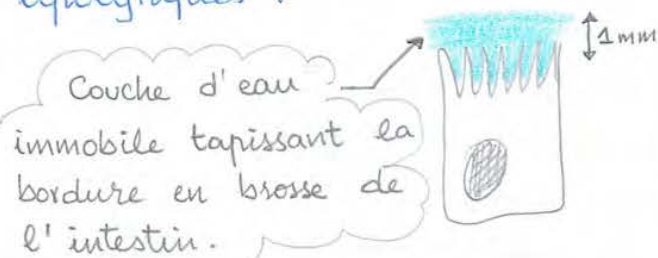 1 mm
Couche d'eau
immobile tapissant la
bordure en brosse de
l'intestin.